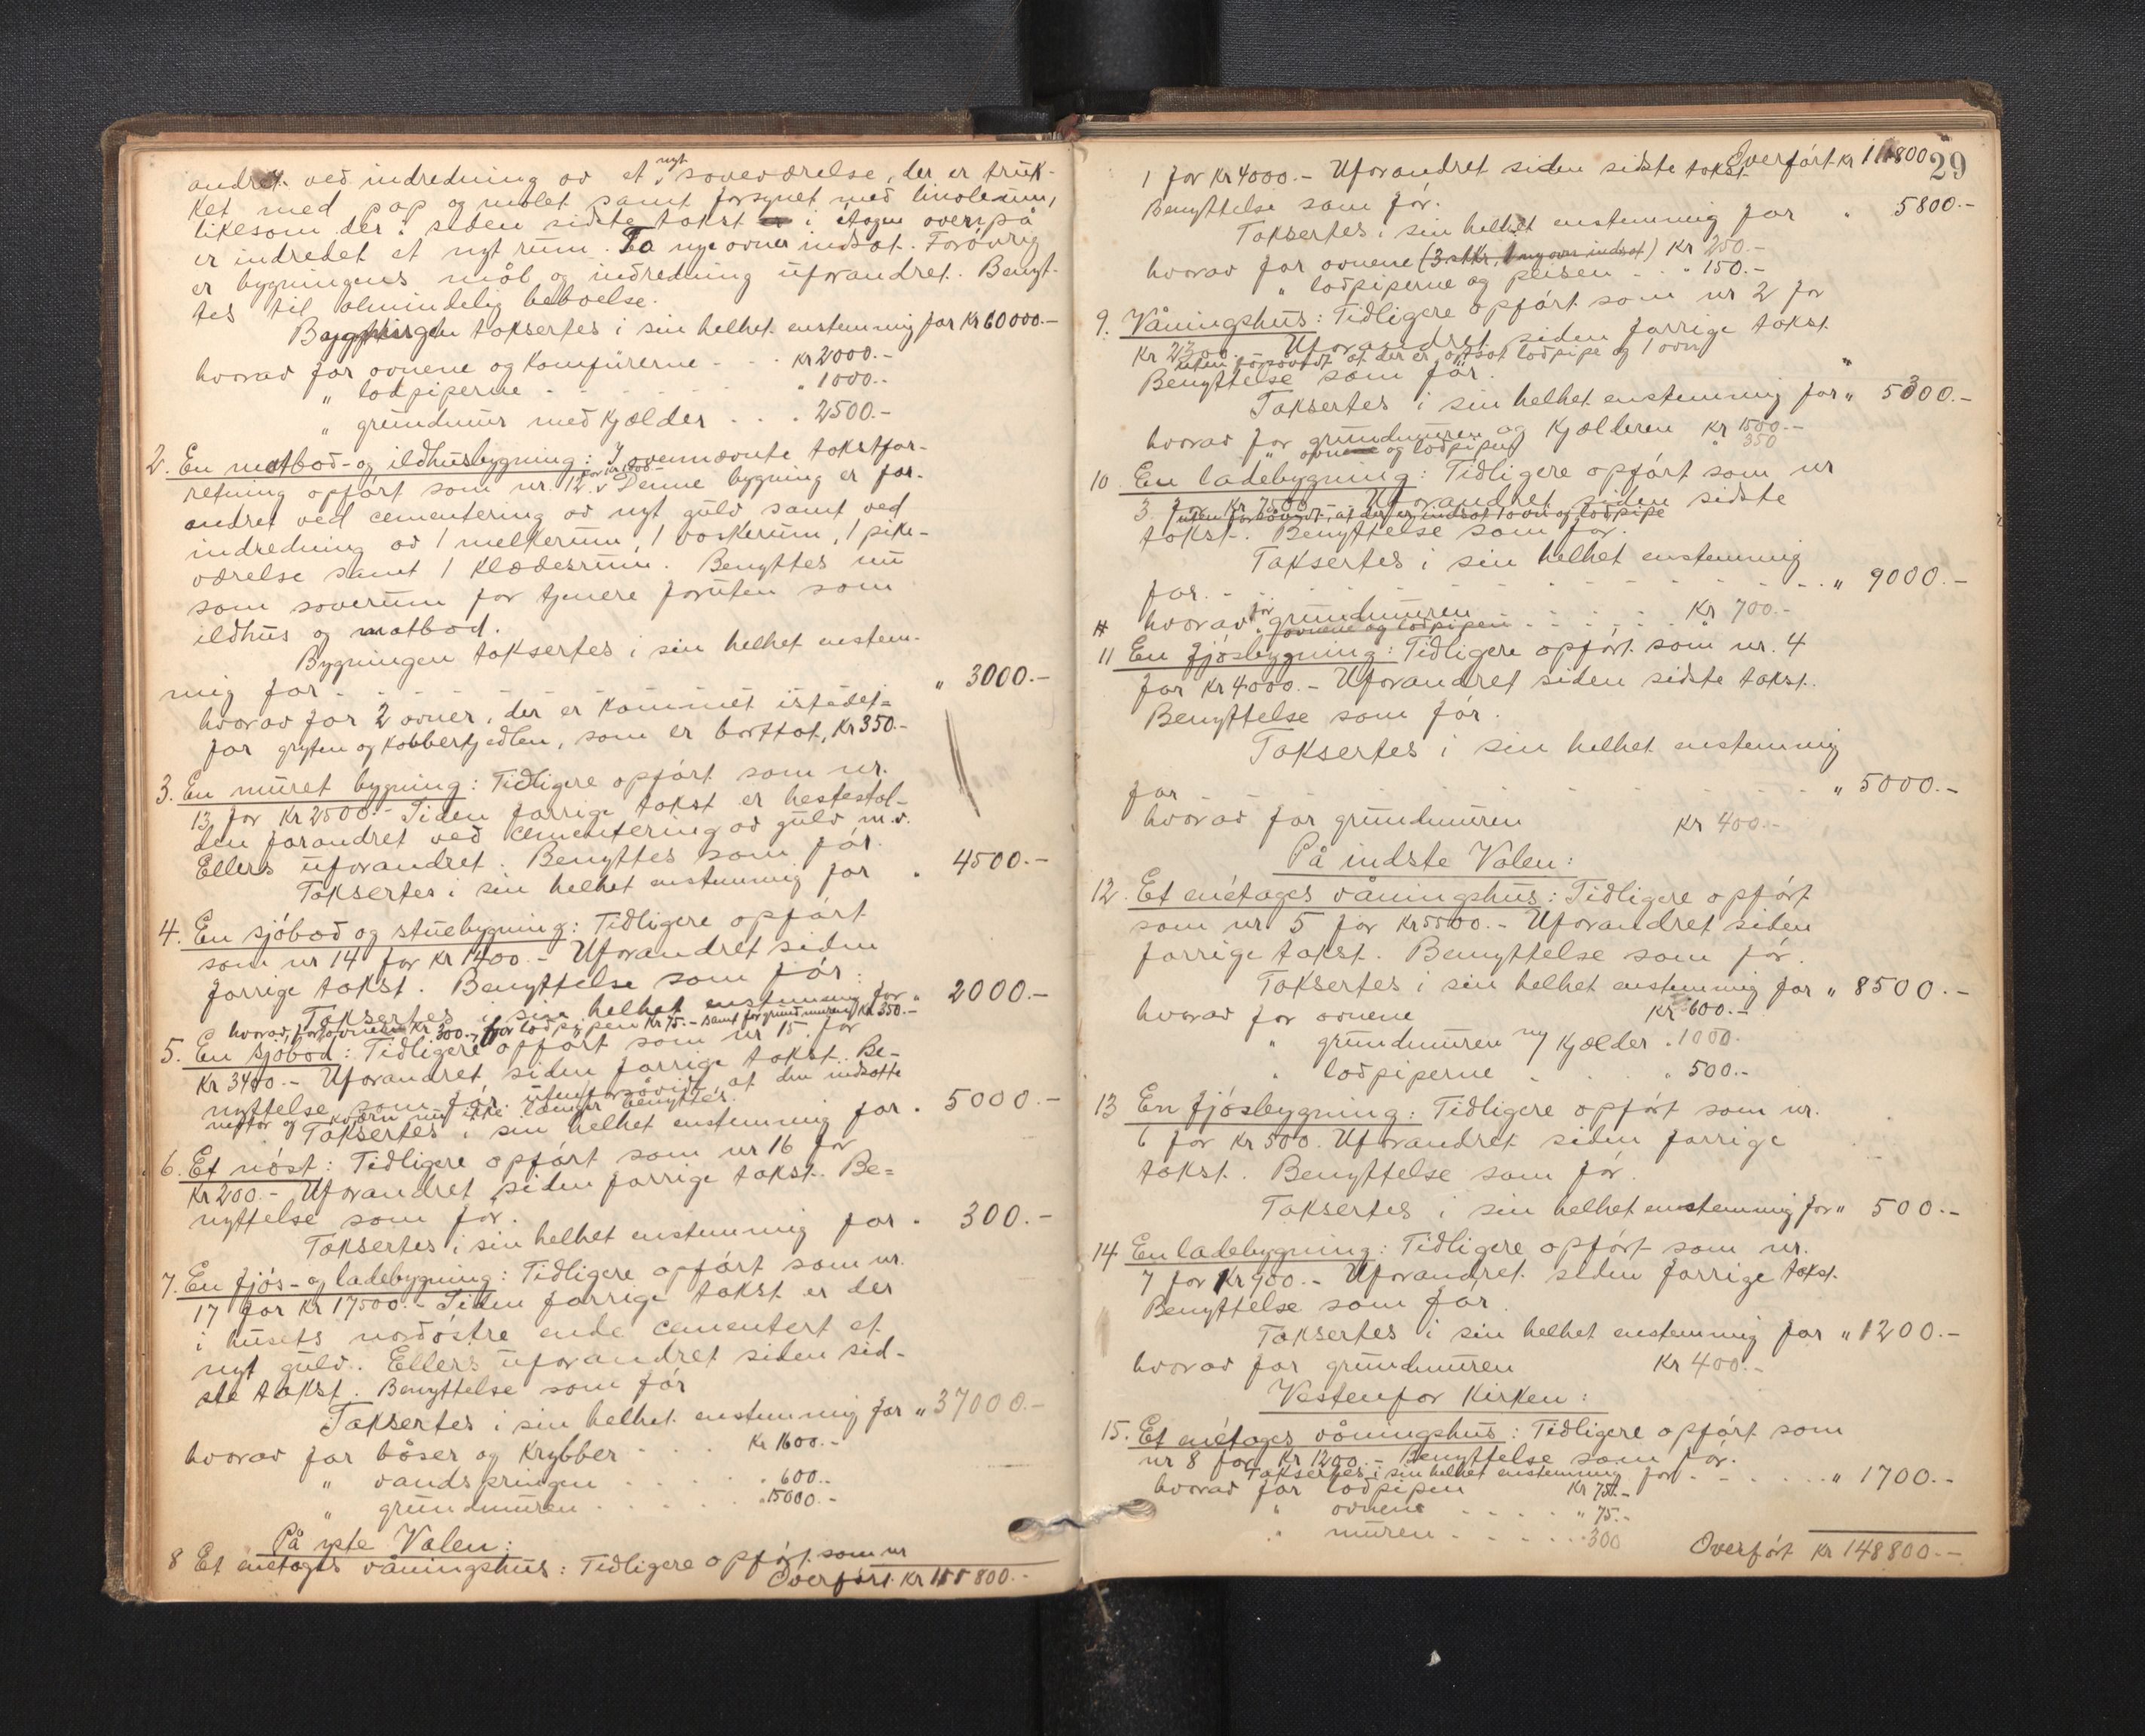 andret ved indredning av et nyt soveværelse, der er truk-
ket med pap og malet samt forsynet med linoleum,
likesom der siden sidste takst i etagen ovenpå
er indredet et nyt rum. To nye ovner indsat. Forøvrig
er bygningens mål og indredning uforandret. Benyt-
tes til almindelig beboelse.
Bygningen taksertes i sin helhet enstemmig for kr 60000.-
hvorav for ovnene og komfurerne - - kr 2000.-
" lodpiperne - - - " 1000.-
" grundmur med kjælder . . . 2500.-
2. En matbod- og ildhusbygning: I ovennævnte takstfor-
retning opført som nr. 12. Denne bygning er for-
andret ved cementering av nyt gulv samt ved
indredning av 1 melkerum, 1 vaskerum, 1 pike-
værelse samt 1 klædesrum. Benyttes nu
som soverum for tjenere foruten som
ildhus og matbod.
Bygningen taksertes i sin helhet enstem-
mig for - - - - - - - " 3000.-
hvorav for 2 ovner, der er kommet istedet-
for gryten og kobberkjedlen, som er borttat, kr 350.-
3. En muret bygning: Tidligere opført som nr.
13 for kr 2500.- Siden forrige takst er hestestal-
den forandret ved cementering av gulv m.v.
Ellers uforandret. Benyttes som før.
Taksertes i sin helhet enstemmig for " 4500.-
4. En sjøbod og stuebygning: Tidligere opført
som nr 14 for kr 1400.- Uforandret siden
forrige takst. Benyttelse som før.
Taksertes i sin helhet enstemmig for " 2000.-
hvorav for ovnene kr 300.-, for lodpipen kr 75.- samt for grundmuren kr 350.-
5. En sjøbod: Tidligere opført som nr 15 for
kr 3400.- Uforandret siden forrige takst. Be-
nyttelse som før, uten forsåvidt, at den indsatte
motor og kværn nu ikke længer benyttes.
Taksertes i sin helhet enstemmig for . 5000.-
6. Et nøst: Tidligere opført som nr 16 for
kr 200.- Uforandret siden forrige takst. Be=
nyttelse som før.
Taksertes i sin helhet enstemmig for " 300.-
7. En fjøs- og ladebygning: Tidligere opført som nr.
17 for kr 17500.- Siden forrige takst er der
i husets nordøstre ende cementert et
nyt gulv. Ellers uforandret siden sid-
ste takst. Benyttelse som før
Taksertes i sin helhet enstemmig for " 37000.-
hvorav for båser og krybber - - - kr 1600.-
" vandspringen . . . . . " 600.-
" grundmuren . . . . . " 15000.-
På ytte Valen:
8 Et enetages våningshus: Tidligere opført som nr
Overført kr 111800.-
29
Overført kr 111800
1 for kr 4000.- Uforandret siden sidste takst.
Benyttelse som før.
Taksertes i sin helhet enstemmig for " 5800.-
hvorav for ovnene (3 stkr, 1 ny ovn indsat) kr 250.-
" lodpiperne og peisen - - " 150.-
9. Våningshus: Tidligere opført som nr 2 for
kr 2300. Uforandret siden forrige takst
uten forsåvidt at der er opsat lodpipe og 1 ovn
Benyttelse som før.
Taksertes i sin helhet enstemmig for " 5300.-
hvorav for grundmuren og kjælderen kr 1500.-
" ovnene og lodpipen " 350
10 En ladebygning: Tidligere opført som nr
3 for kr 7500.- Uforandret siden sidste
uten forsåvidt, at der er indsat 1 ovn og lodpipe
takst. Benyttelse som før.
Taksertes i sin helhet enstemmig
for. - - - - - - - - - - " 9000.-
hvorav for grundmuren - - - - - kr 700.-
" ovnene og lodpipen
11 En fjøsbygning: Tidligere opført som nr. 4
for kr 4000.- Uforandret siden sidste takst.
Benyttelse som før.
Taksertes i sin helhet enstemmig
for - - - - - - - - - - " 5000.-
hvorav for grundmuren kr 400.-
På indste Valen:
12. Et enetages våningshus: Tidligere opført
som nr 5 for kr 5500.- Uforandret siden
forrige takst. Benyttelse som før.
Taksertes i sin helhet enstemmig for " 8500.-
hvorav for ovnene kr 600.-
" grundmuren og kjælder . 1000.
" lodpiperne . . . " 500.-
13 En fjøsbygning: Tidligere opført som nr.
6 for kr 500. Uforandret siden forrige
takst. Benyttelse som før.
Taksertes i sin helhet enstemmig for " 500.-
14 En ladebygning: Tidligere opført som nr.
7 for kr 900.- Uforandret siden forrige takst.
Benyttelse som før.
Taksertes i sin helhet enstemmig for " 1200.-
hvorav for grundmuren kr 400.-
Vestenfor kirken:
15. Et enetages våningshus: Tidligere opført som
nr 8 for kr 1200.- Benyttelse som før.
Taksertes i sin helhet enstemmig for - - - - " 1700.-
hvorav for lodpipen kr 75.-
" ovnene . . . . " 75.-
" muren - - - - - 300
Overført kr 148800.-